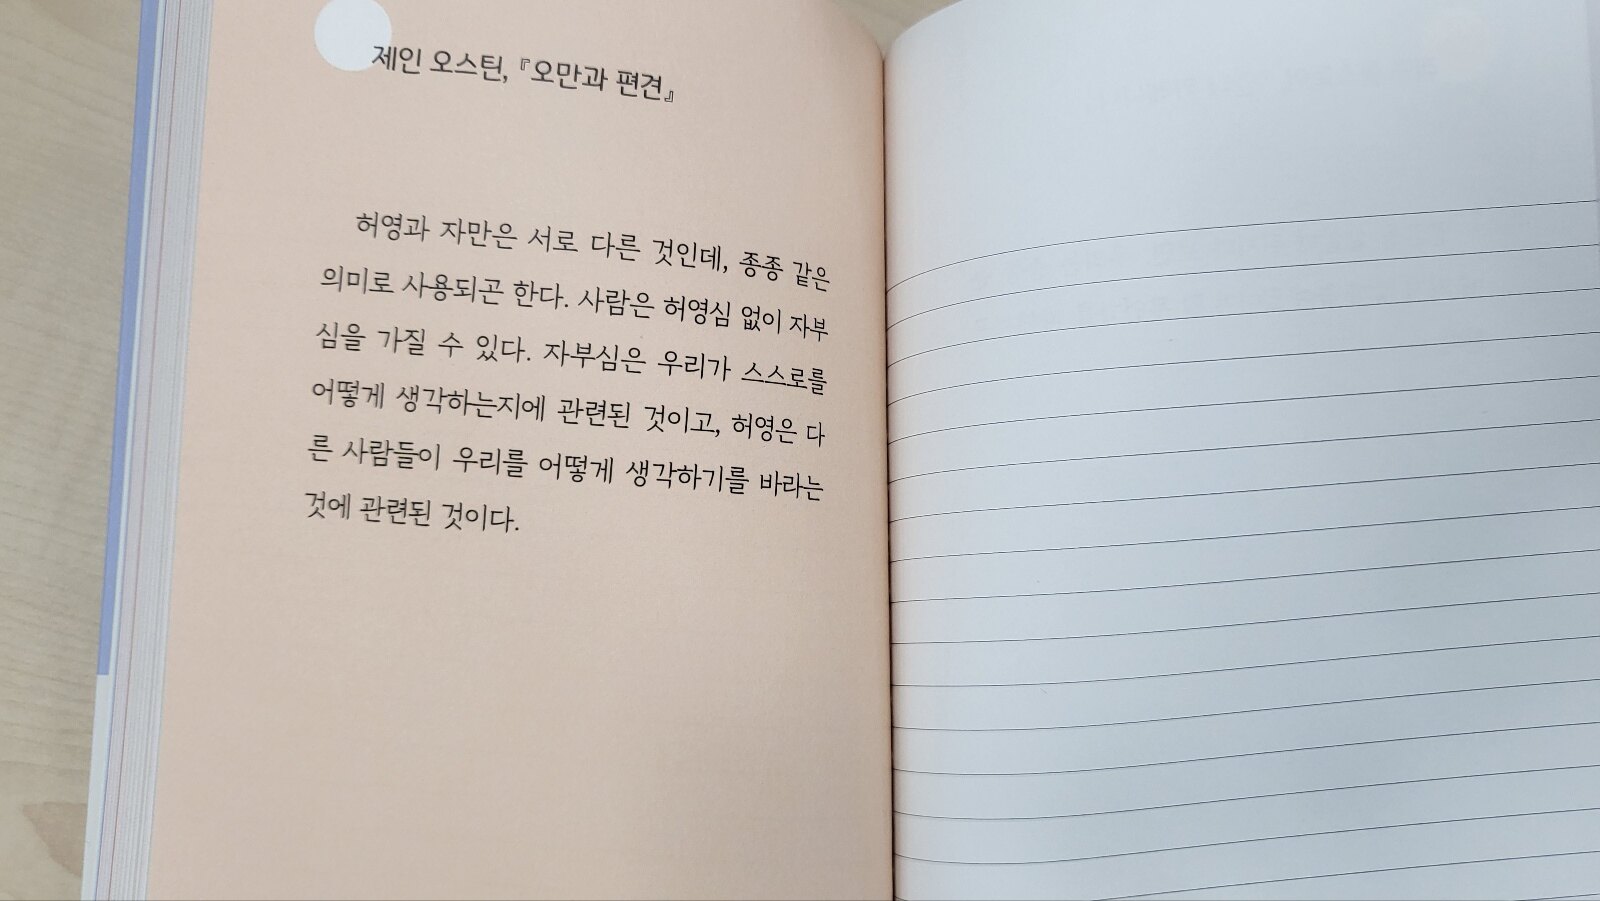 제인 오스틴, 『오만과 편견』
허영과 자만은 서로 다른 것인데, 종종 같은
의미로 사용되곤 한다. 사람은 허영심 없이 자부
심을 가질 수 있다. 자부심은 우리가 스스로를
어떻게 생각하는지에 관련된 것이고, 허영은 다
른 사람들이 우리를 어떻게 생각하기를 바라는
것에 관련된 것이다.